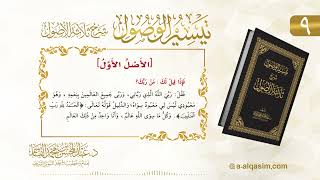 تيسير الوصول شرح ثلاثة الأصول
٩
[الأصل الأول]
فإذا قيل لك: من ربك؟
فقل: ربي الله الذي رباني، وربى جميع العالمين بنعمه، وهو
معبودي ليس لي معبود سواه؛ والدليل قوله تعالى: ﴿الحمد لله رب
العالمين﴾. وكل ما سوى الله عالم، وأنا واحد من ذلك العالم
تيسير الوصول
شرح
ثلاثة الأصول
a-alqasim.com